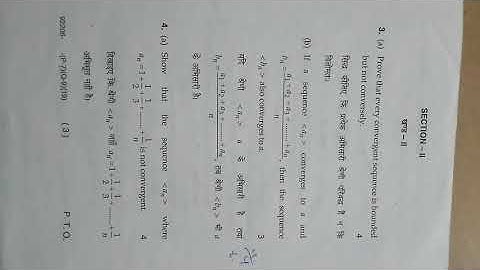 SECTION – II
खण्ड – II
3. (a) Prove that every convergent sequence is bounded
but not conversely. 4
सिद्ध कीजिए कि प्रत्येक अभिसारी श्रेणी परिबद्ध है न कि
विलोमतः।
(b) If a sequence <aₙ> converges to a and
bₙ = (a₁ + a₂ + a₃ + ........ + aₙ)/n, then the sequence
<bₙ> also converges to a. 3
यदि श्रेणी <aₙ> a के अभिसारी है तथा
bₙ = (a₁ + a₂ + a₃ + ........ + aₙ)/n, तब श्रेणी <bₙ> भी a
के अभिसारी है।
4. (a) Show that the sequence <aₙ> where
aₙ = 1 + 1/2 + 1/3 + ........ + 1/n is not convergent. 4
दिखाइए कि श्रेणी <aₙ> जहाँ aₙ = 1 + 1/2 + 1/3 + ........ + 1/n
अभिसृत नहीं है।
(3) P. T. O.